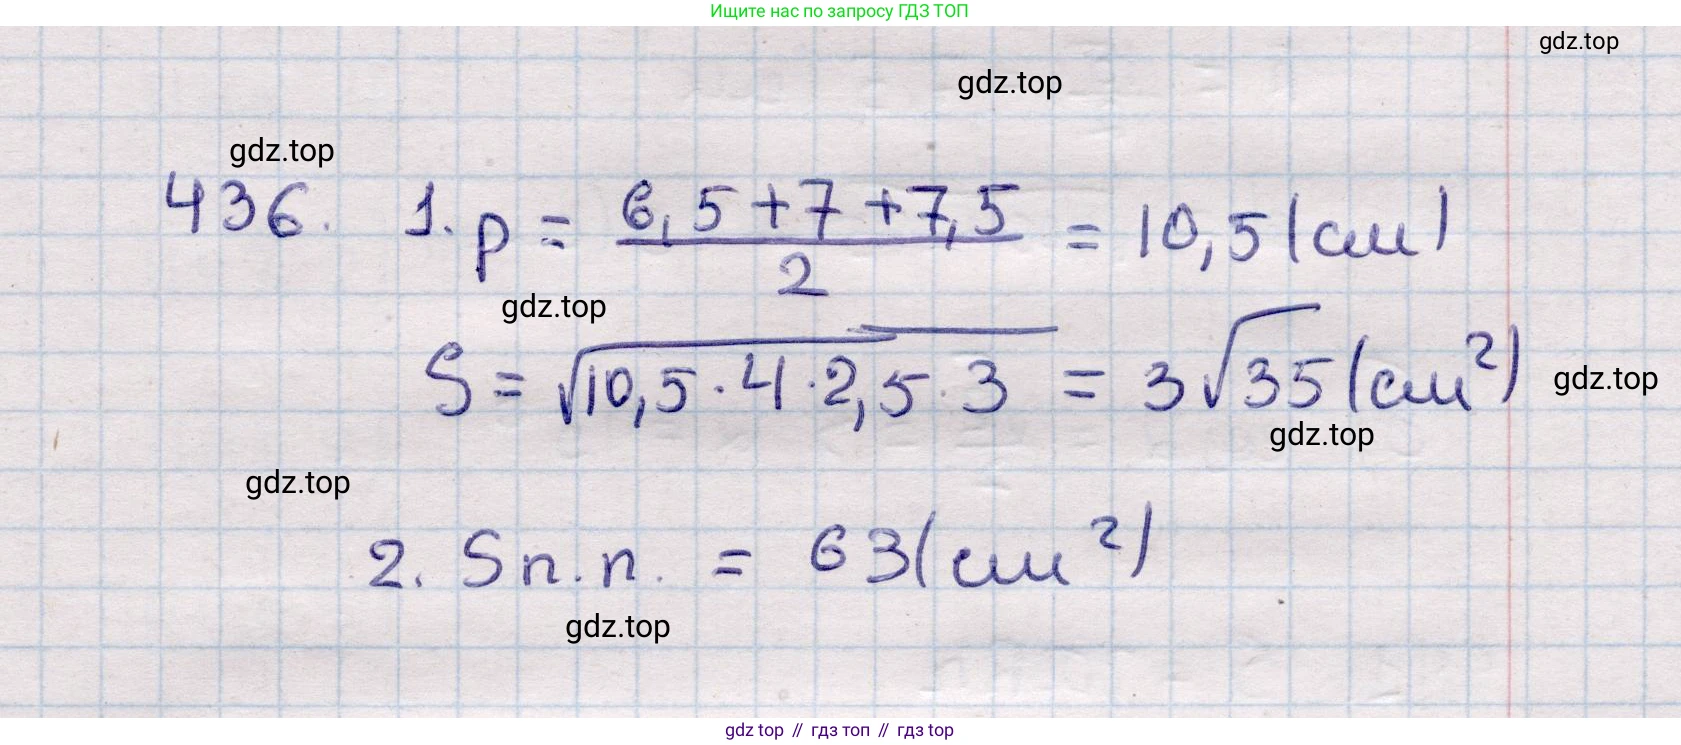 Ищите нас по запросу ГДЗ ТОП
gdz.top
gdz.top
gdz.top
436. 1. p = (6,5 + 7 + 7,5)/2 = 10,5 (см)
gdz.top
S = √(10,5 · 4 · 2,5 · 3) = 3√35 (см²)
gdz.top
gdz.top
gdz.top
2. Sп.п. = 63 (см²)
gdz.top
gdz top // гдз топ // гдз top